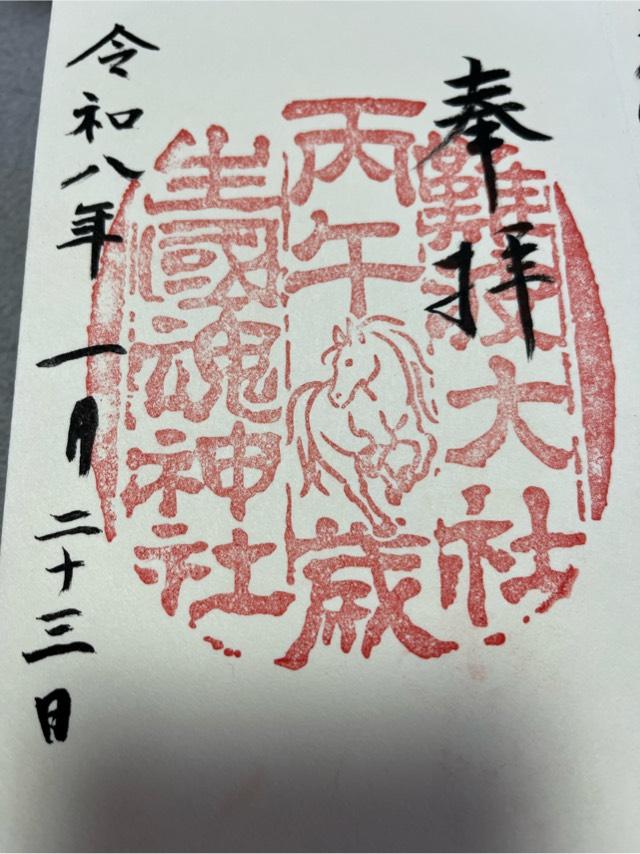 奉拝
難波大社
丙午歳
生國魂神社
令和八年一月二十三日